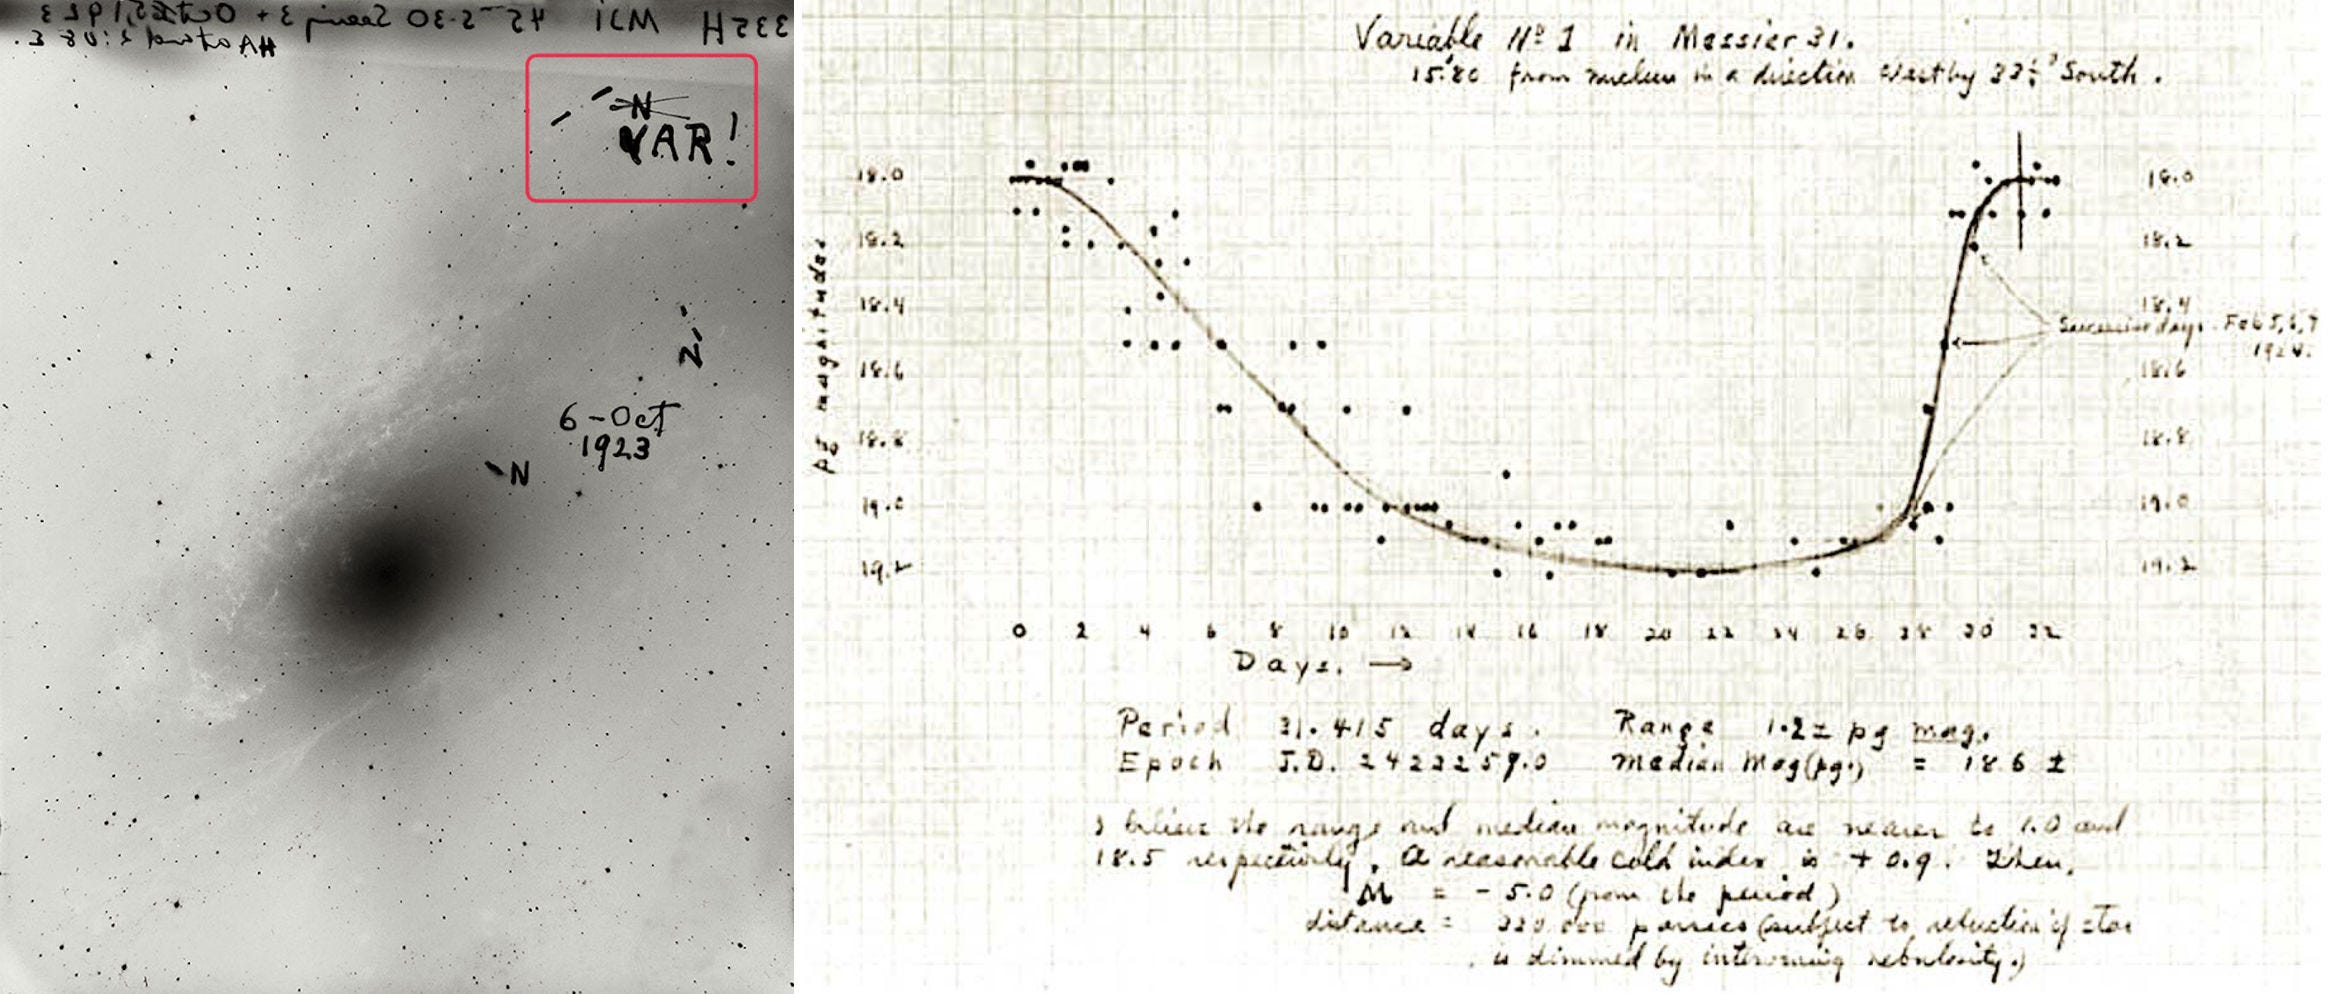 H335 M31 45ᵐ Seeing 3+ Oct 5, 1923
HA at end
N
VAR!
N
6-Oct
1923
N
Variable Nº 1 in Messier 31.
15.'80 from nucleus in a direction West by South.
pg magnitudes
18.0 18.0
18.2 18.2
18.4 18.4
Successive days. Feb 5, 6, 7
1924.
18.6 18.6
18.8 18.8
19.0 19.0
19.2 19.2
0 2 4 6 8 10 12 14 16 18 20 22 24 26 28 30 32
Days. →
Period 31.415 days. Range 1.2± pg mag.
Epoch J.D. Median Mag(pg.) = 18.6 ±
I believe the range and median magnitude are nearer to 1.0 and
18.5 respectively. A reasonable color index is + 0.9. Then,
M = -5.0 (from the period)
distance = 320 000 parsecs (subject to reduction if star
is dimmed by intervening nebulosity.)